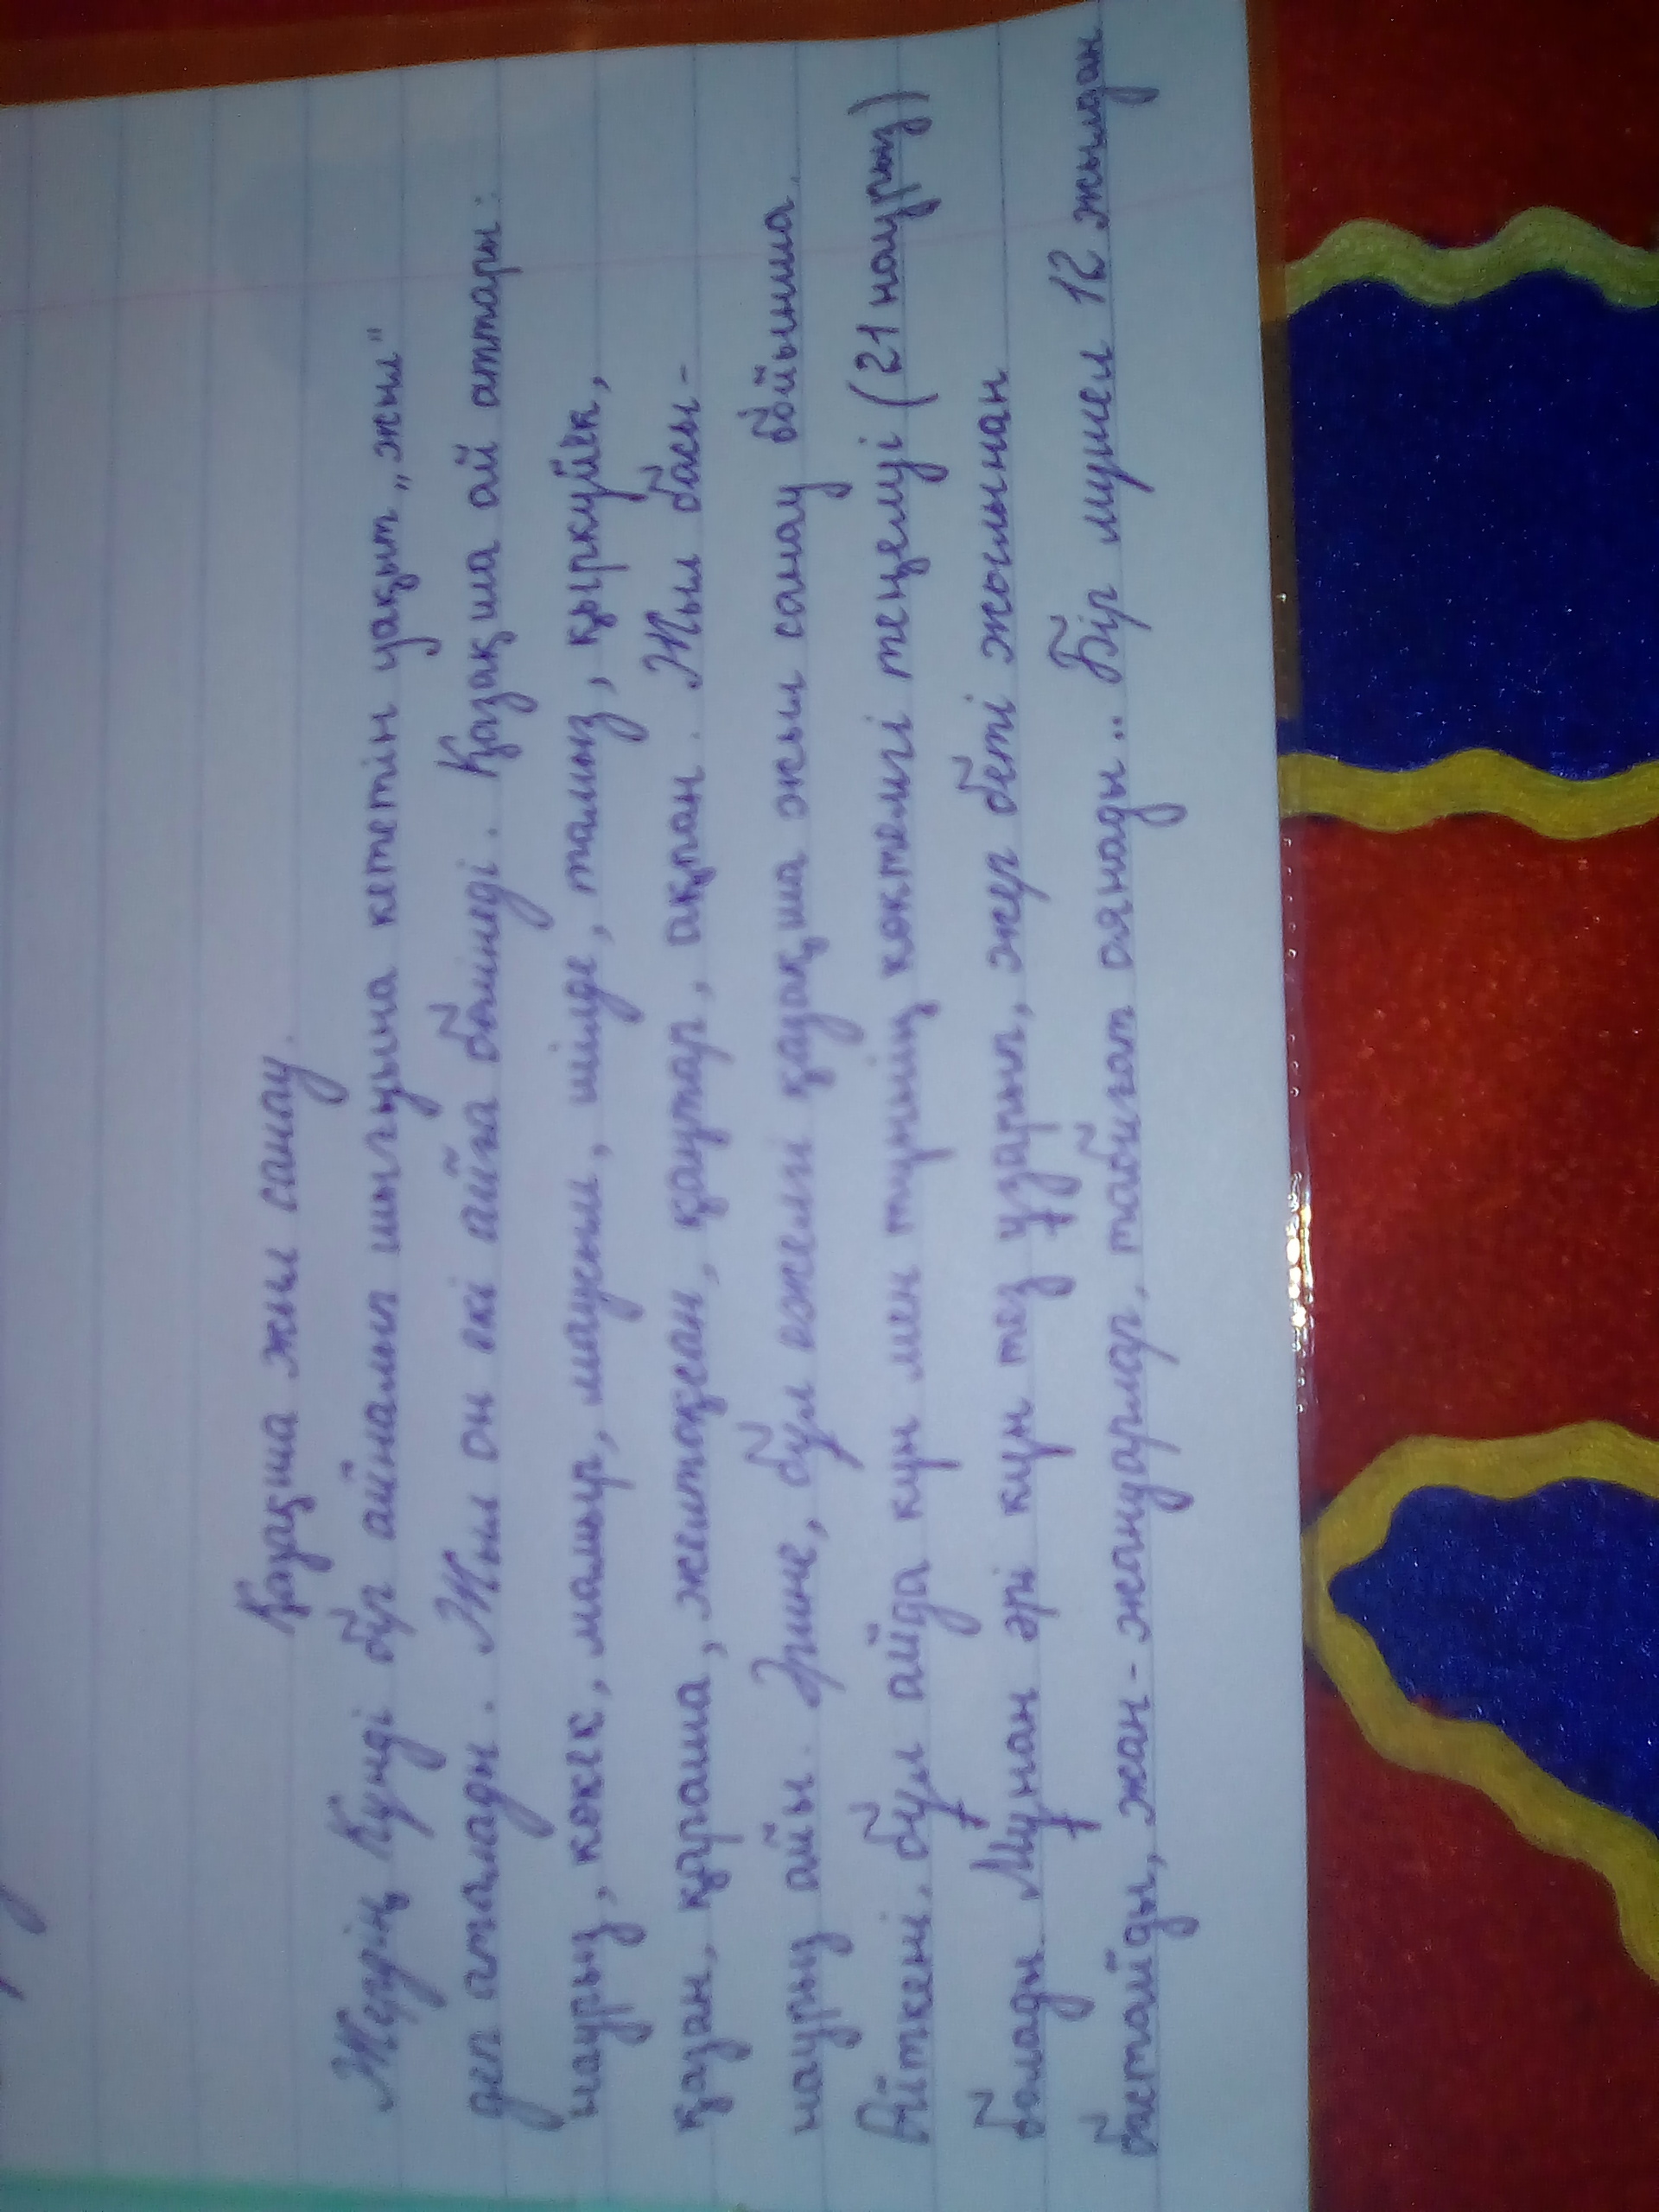 Қазақша жыл санау.
Жердің Күнді бір айналып шығуына кететін уақыт „жыл"
деп аталады. Жыл он екі айға бөлінеді. Қазақша ай аттары:
наурыз, көкек, мамыр, маусым, шілде, тамыз, қыркүйек,
қазан, қараша, желтоқсан, қаңтар, ақпан. Жыл басы-
наурыз айы. Әрине, бұл ежелгі қазақша жыл санау бойынша.
Өйткені, бұл айда күн мен түннің көктемгі теңелуі (21 наурыз)
болады. Мұнан әрі күн тез ұзарып, жер беті жылынан
бастайды, жан-жануарлар, табиғат оянады.. Бір мүшел 12 жылдан